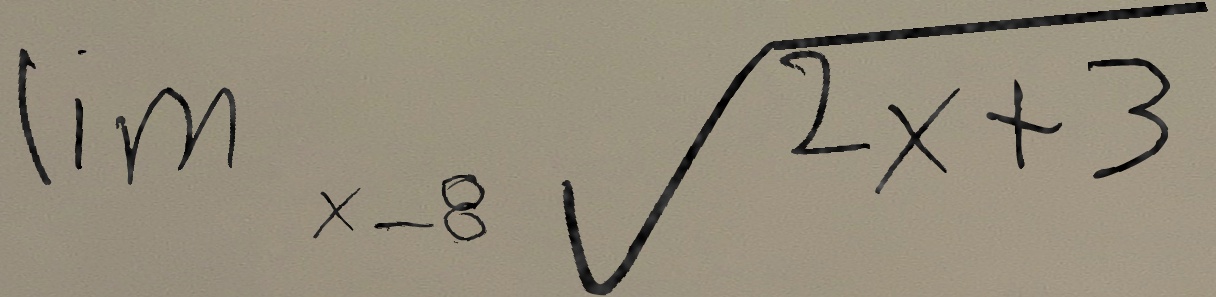 lim x-8 √2x+3